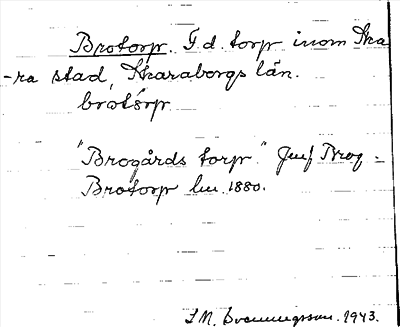 Brotorp. F.d. torp inom Ska
-ra stad, Skaraborgs län.
brótórp
"Brogårds torp." Jmf Brog.
Brotorp lm 1880.
1943.